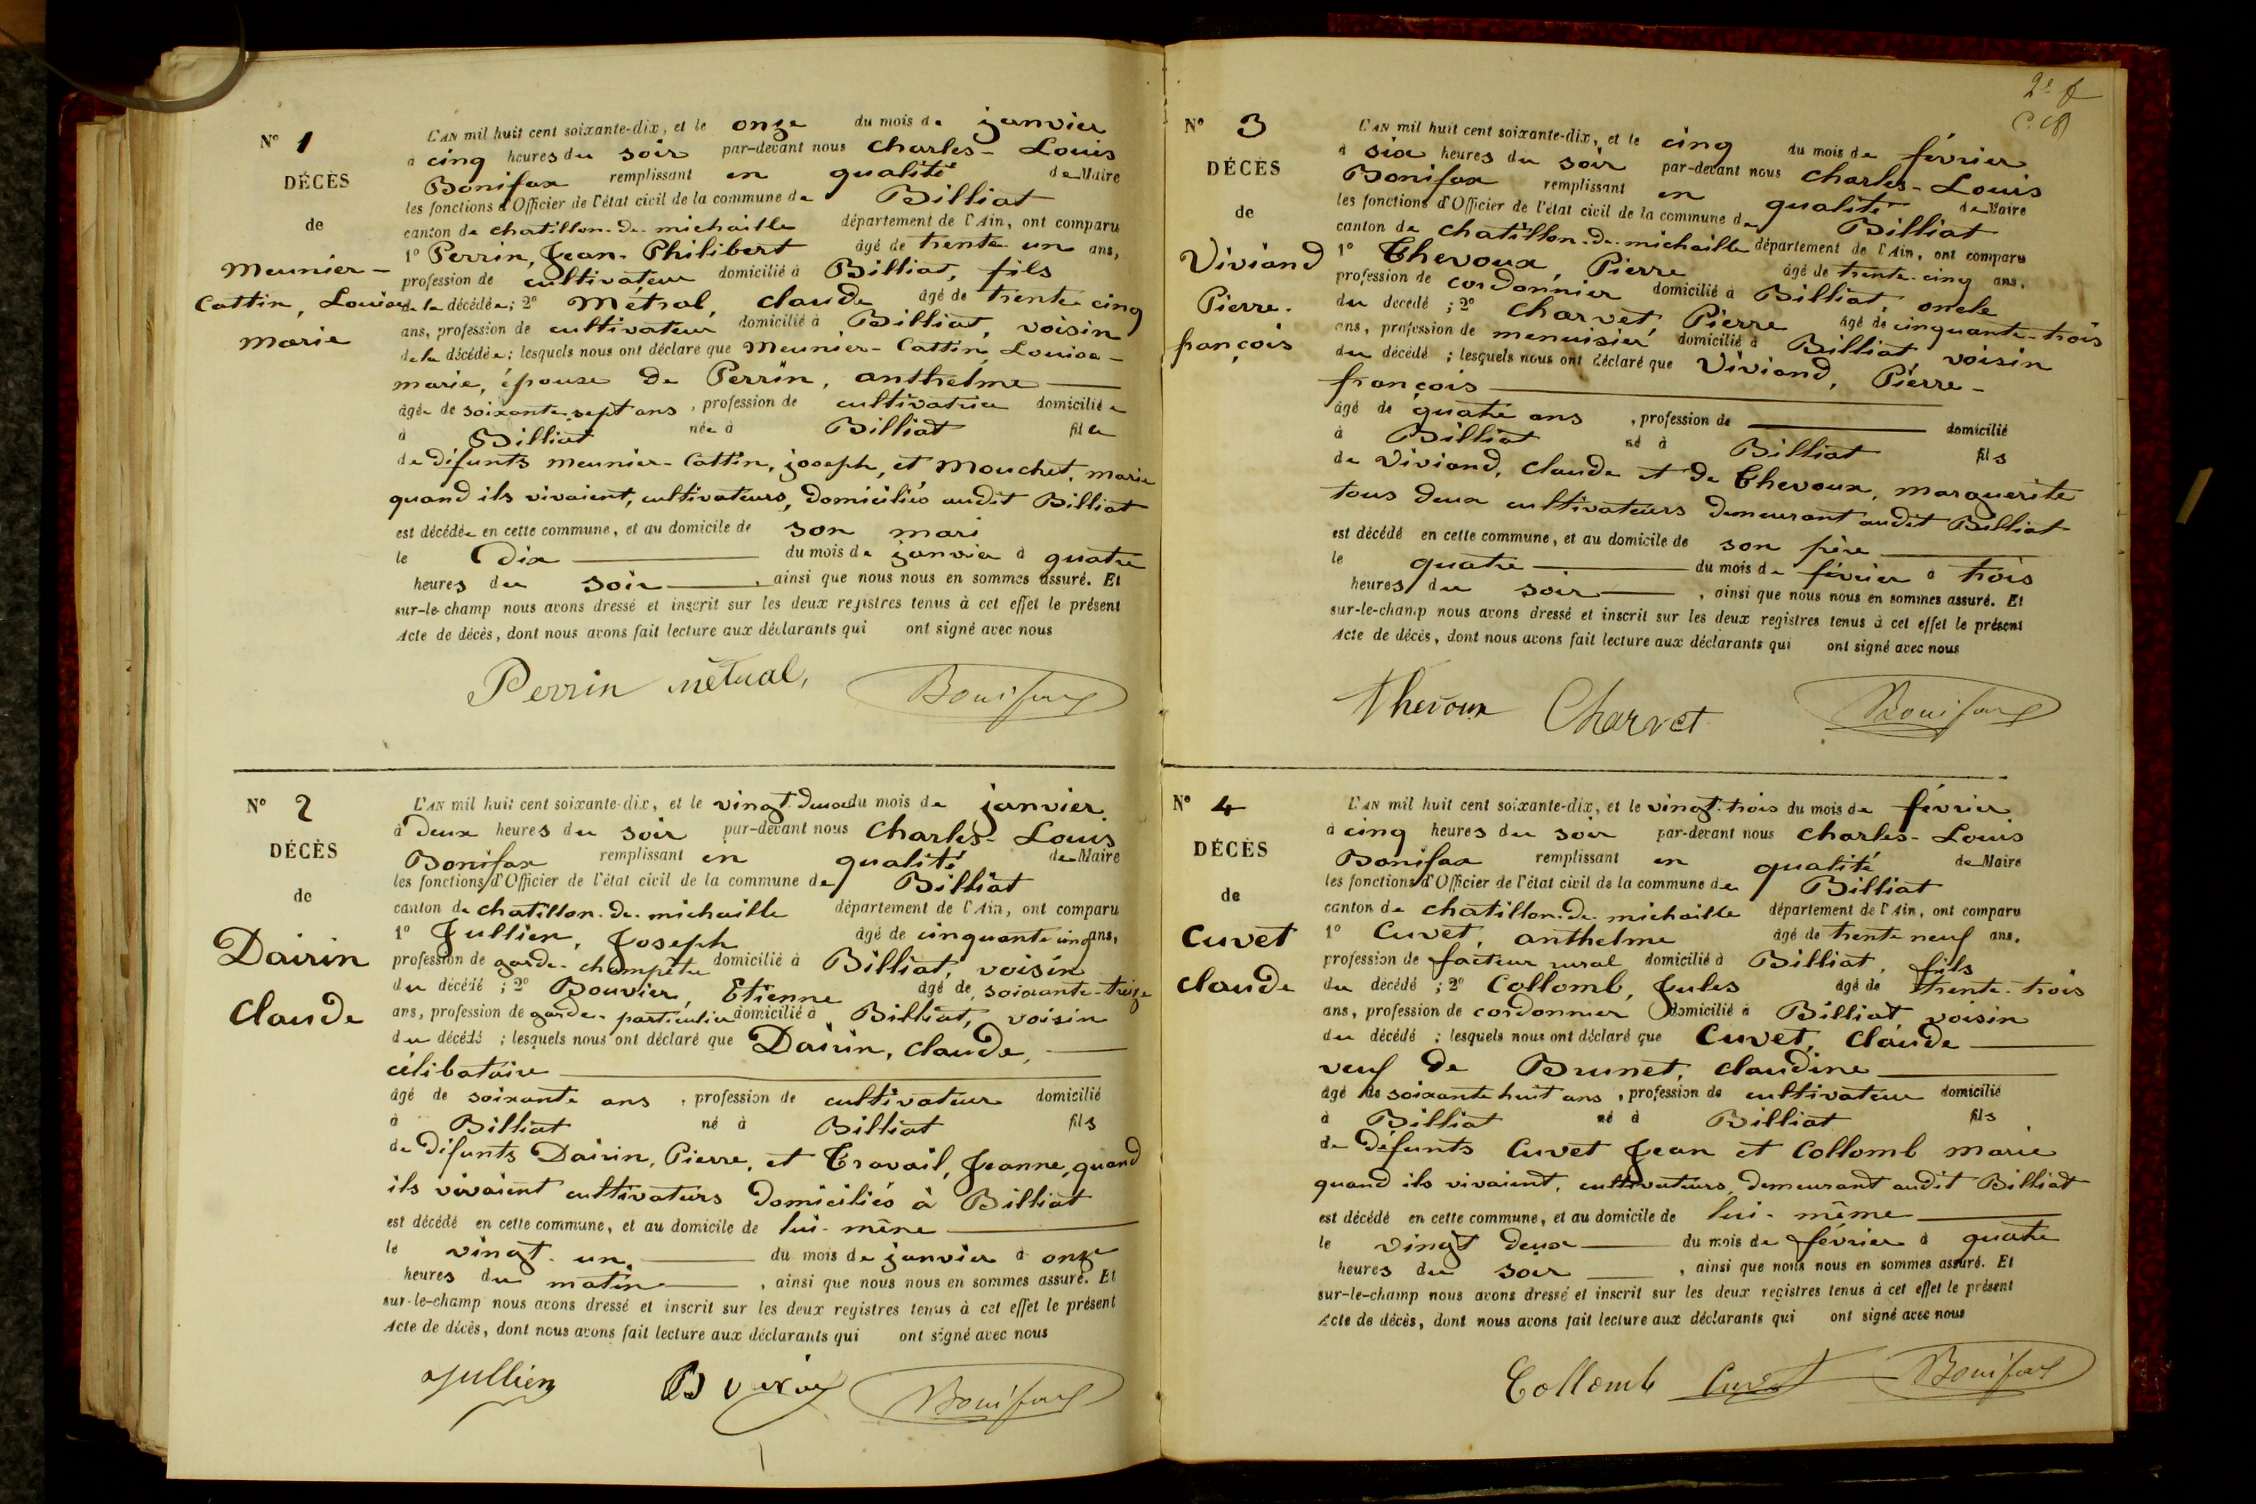 N° 1
DÉCÈS
de
Meunier-
Cattin, Louise
marie
L'AN mil huit cent soixante-dix, et le onze du mois de janvier
à cinq heures du soir par-devant nous Charles-Louis
Bonifax remplissant en qualité de Maire
les fonctions d'Officier de l'état civil de la commune de Billiat
canton de chatillon-de-michaille département de l'Ain, ont comparu
1° Perrin, Jean-Philibert âgé de trente un ans,
profession de cultivateur domicilié à Billiat, fils
de la décédée; 2° Métral, claude âgé de trente cinq
ans, profession de cultivateur domicilié à Billiat, voisin
de la décédée; lesquels nous ont déclaré que Meunier-Cattin, Louise-
marie, épouse de Perrin, anthelme
âgée de soixante sept ans, profession de cultivatrice domiciliée
à Billiat née à Billiat fille
de défunts meunier-Cattin, joseph, et Mouchet, marie
quand ils vivaient, cultivateurs, domiciliés audit Billiat
est décédée en cette commune, et au domicile de son mari
le Dix du mois de janvier à quatre
heures du soir, ainsi que nous nous en sommes assuré. Et
sur-le-champ nous avons dressé et inscrit sur les deux registres tenus à cet effet le présent
Acte de décès, dont nous avons fait lecture aux déclarants qui ont signé avec nous
Perrin métral, Bonifax
N° 2
DÉCÈS
de
Dairin
Claude
L'AN mil huit cent soixante-dix, et le vingt-deux du mois de janvier
à deux heures du soir par-devant nous Charles-Louis
Bonifax remplissant en qualité de Maire
les fonctions d'Officier de l'état civil de la commune de Billiat
canton de chatillon-de-michaille département de l'Ain, ont comparu
1° Jullien, Joseph âgé de cinquante cinq ans,
profession de garde-champêtre domicilié à Billiat, voisin
du décédé; 2° Bouvier, Etienne âgé de soixante-treize
ans, profession de garde-particulier domicilié à Billiat, voisin
du décédé; lesquels nous ont déclaré que Dairin, claude,
célibataire
âgé de soixante ans, profession de cultivateur domicilié
à Billiat né à Billiat fils
de défunts Dairin, Pierre, et Travail, Jeanne, quand
ils vivaient cultivateurs domiciliés à Billiat
est décédé en cette commune, et au domicile de lui-même
le vingt-un du mois de janvier à onze
heures du matin, ainsi que nous nous en sommes assuré. Et
sur-le-champ nous avons dressé et inscrit sur les deux registres tenus à cet effet le présent
Acte de décès, dont nous avons fait lecture aux déclarants qui ont signé avec nous
Jullien Bonifax
2e f
N° 3
DÉCÈS
de
Viviand
Pierre-
françois
L'AN mil huit cent soixante-dix, et le cinq du mois de février
à six heures du soir par-devant nous Charles-Louis
Bonifax remplissant en qualité de Maire
les fonctions d'Officier de l'état civil de la commune de Billiat
canton de chatillon-de-michaille département de l'Ain, ont comparu
1° Thevoux, Pierre âgé de trente-cinq ans,
profession de cordonnier domicilié à Billiat oncle
du décédé; 2° Charvet, Pierre âgé de cinquante-trois
ans, profession de menuisier domicilié à Billiat voisin
du décédé; lesquels nous ont déclaré que Viviand, Pierre-
françois
âgé de quatre ans, profession de domicilié
à Billiat né à Billiat fils
de Viviand, Claude et de Thevoux, marguerite
tous deux cultivateurs demeurant audit Billiat
est décédé en cette commune, et au domicile de son père
le quatre du mois de février à trois
heures du soir, ainsi que nous nous en sommes assuré. Et
sur-le-champ nous avons dressé et inscrit sur les deux registres tenus à cet effet le présent
Acte de décès, dont nous avons fait lecture aux déclarants qui ont signé avec nous
Thevoux Charvet Bonifax
N° 4
DÉCÈS
de
Cuvet
Claude
L'AN mil huit cent soixante-dix, et le vingt-trois du mois de février
à cinq heures du soir par-devant nous Charles-Louis
Bonifax remplissant en qualité de Maire
les fonctions d'Officier de l'état civil de la commune de Billiat
canton de chatillon-de-michaille département de l'Ain, ont comparu
1° Cuvet, anthelme âgé de trente neuf ans,
profession de facteur rural domicilié à Billiat, fils
du décédé; 2° Collomb, Jules âgé de trente-trois
ans, profession de cordonnier domicilié à Billiat voisin
du décédé; lesquels nous ont déclaré que Cuvet, Claude
veuf de Brunet, claudine
âgé de soixante huit ans, profession de cultivateur domicilié
à Billiat né à Billiat fils
de défunts Cuvet Jean et Collomb marie
quand ils vivaient, cultivateurs, demeurant audit Billiat
est décédé en cette commune, et au domicile de lui-même
le vingt deux du mois de février à quatre
heures du soir, ainsi que nous nous en sommes assuré. Et
sur-le-champ nous avons dressé et inscrit sur les deux registres tenus à cet effet le présent
Acte de décès, dont nous avons fait lecture aux déclarants qui ont signé avec nous
Collomb Cuvet Bonifax